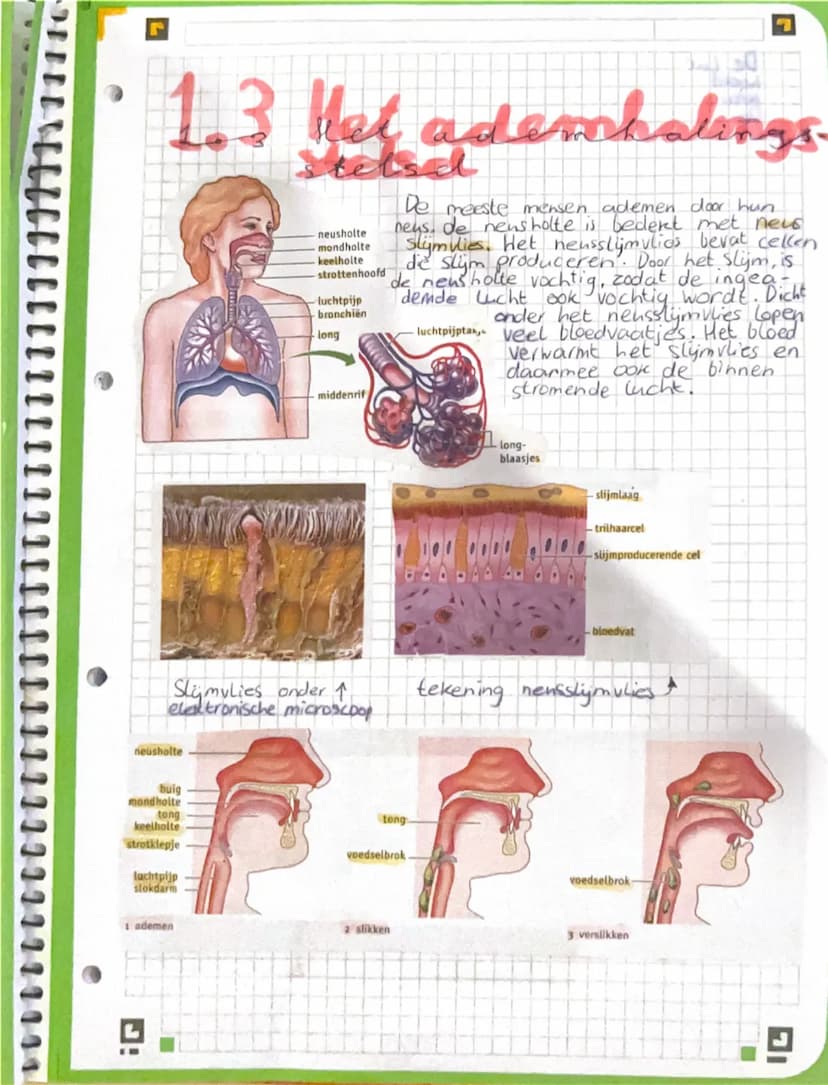 1.3 Het ademhalings-
stelsel
De meeste mensen ademen door hun
neus. de neusholte is bedekt met neus
slijmvlies. Het neusslijmvlies bevat cellen
die slijm produceren. Door het slijm, is
de neusholte vochtig, zodat de ingea-
demde lucht ook vochtig wordt. Dicht
onder het neusslijmvlies lopen
veel bloedvaatjes. Het bloed
verwarmt het slijmvlies en
daarmee ook de binnen
stromende lucht.
neusholte
mondholte
keelholte
strottenhoofd
luchtpijp
bronchiën
long
middenrif
luchtpijptakje
long-
blaasjes
slijmlaag
trilhaarcel
slijmproducerende cel
bloedvat
Slijmvlies onder ↑
elektronische microscoop
tekening neusslijmvlies ↑
neusholte
huig
mondholte
tong
keelholte
strotklepje
luchtpijp
slokdarm
1 ademen
tong
voedselbrok
2 slikken
voedselbrok
3 verslikken